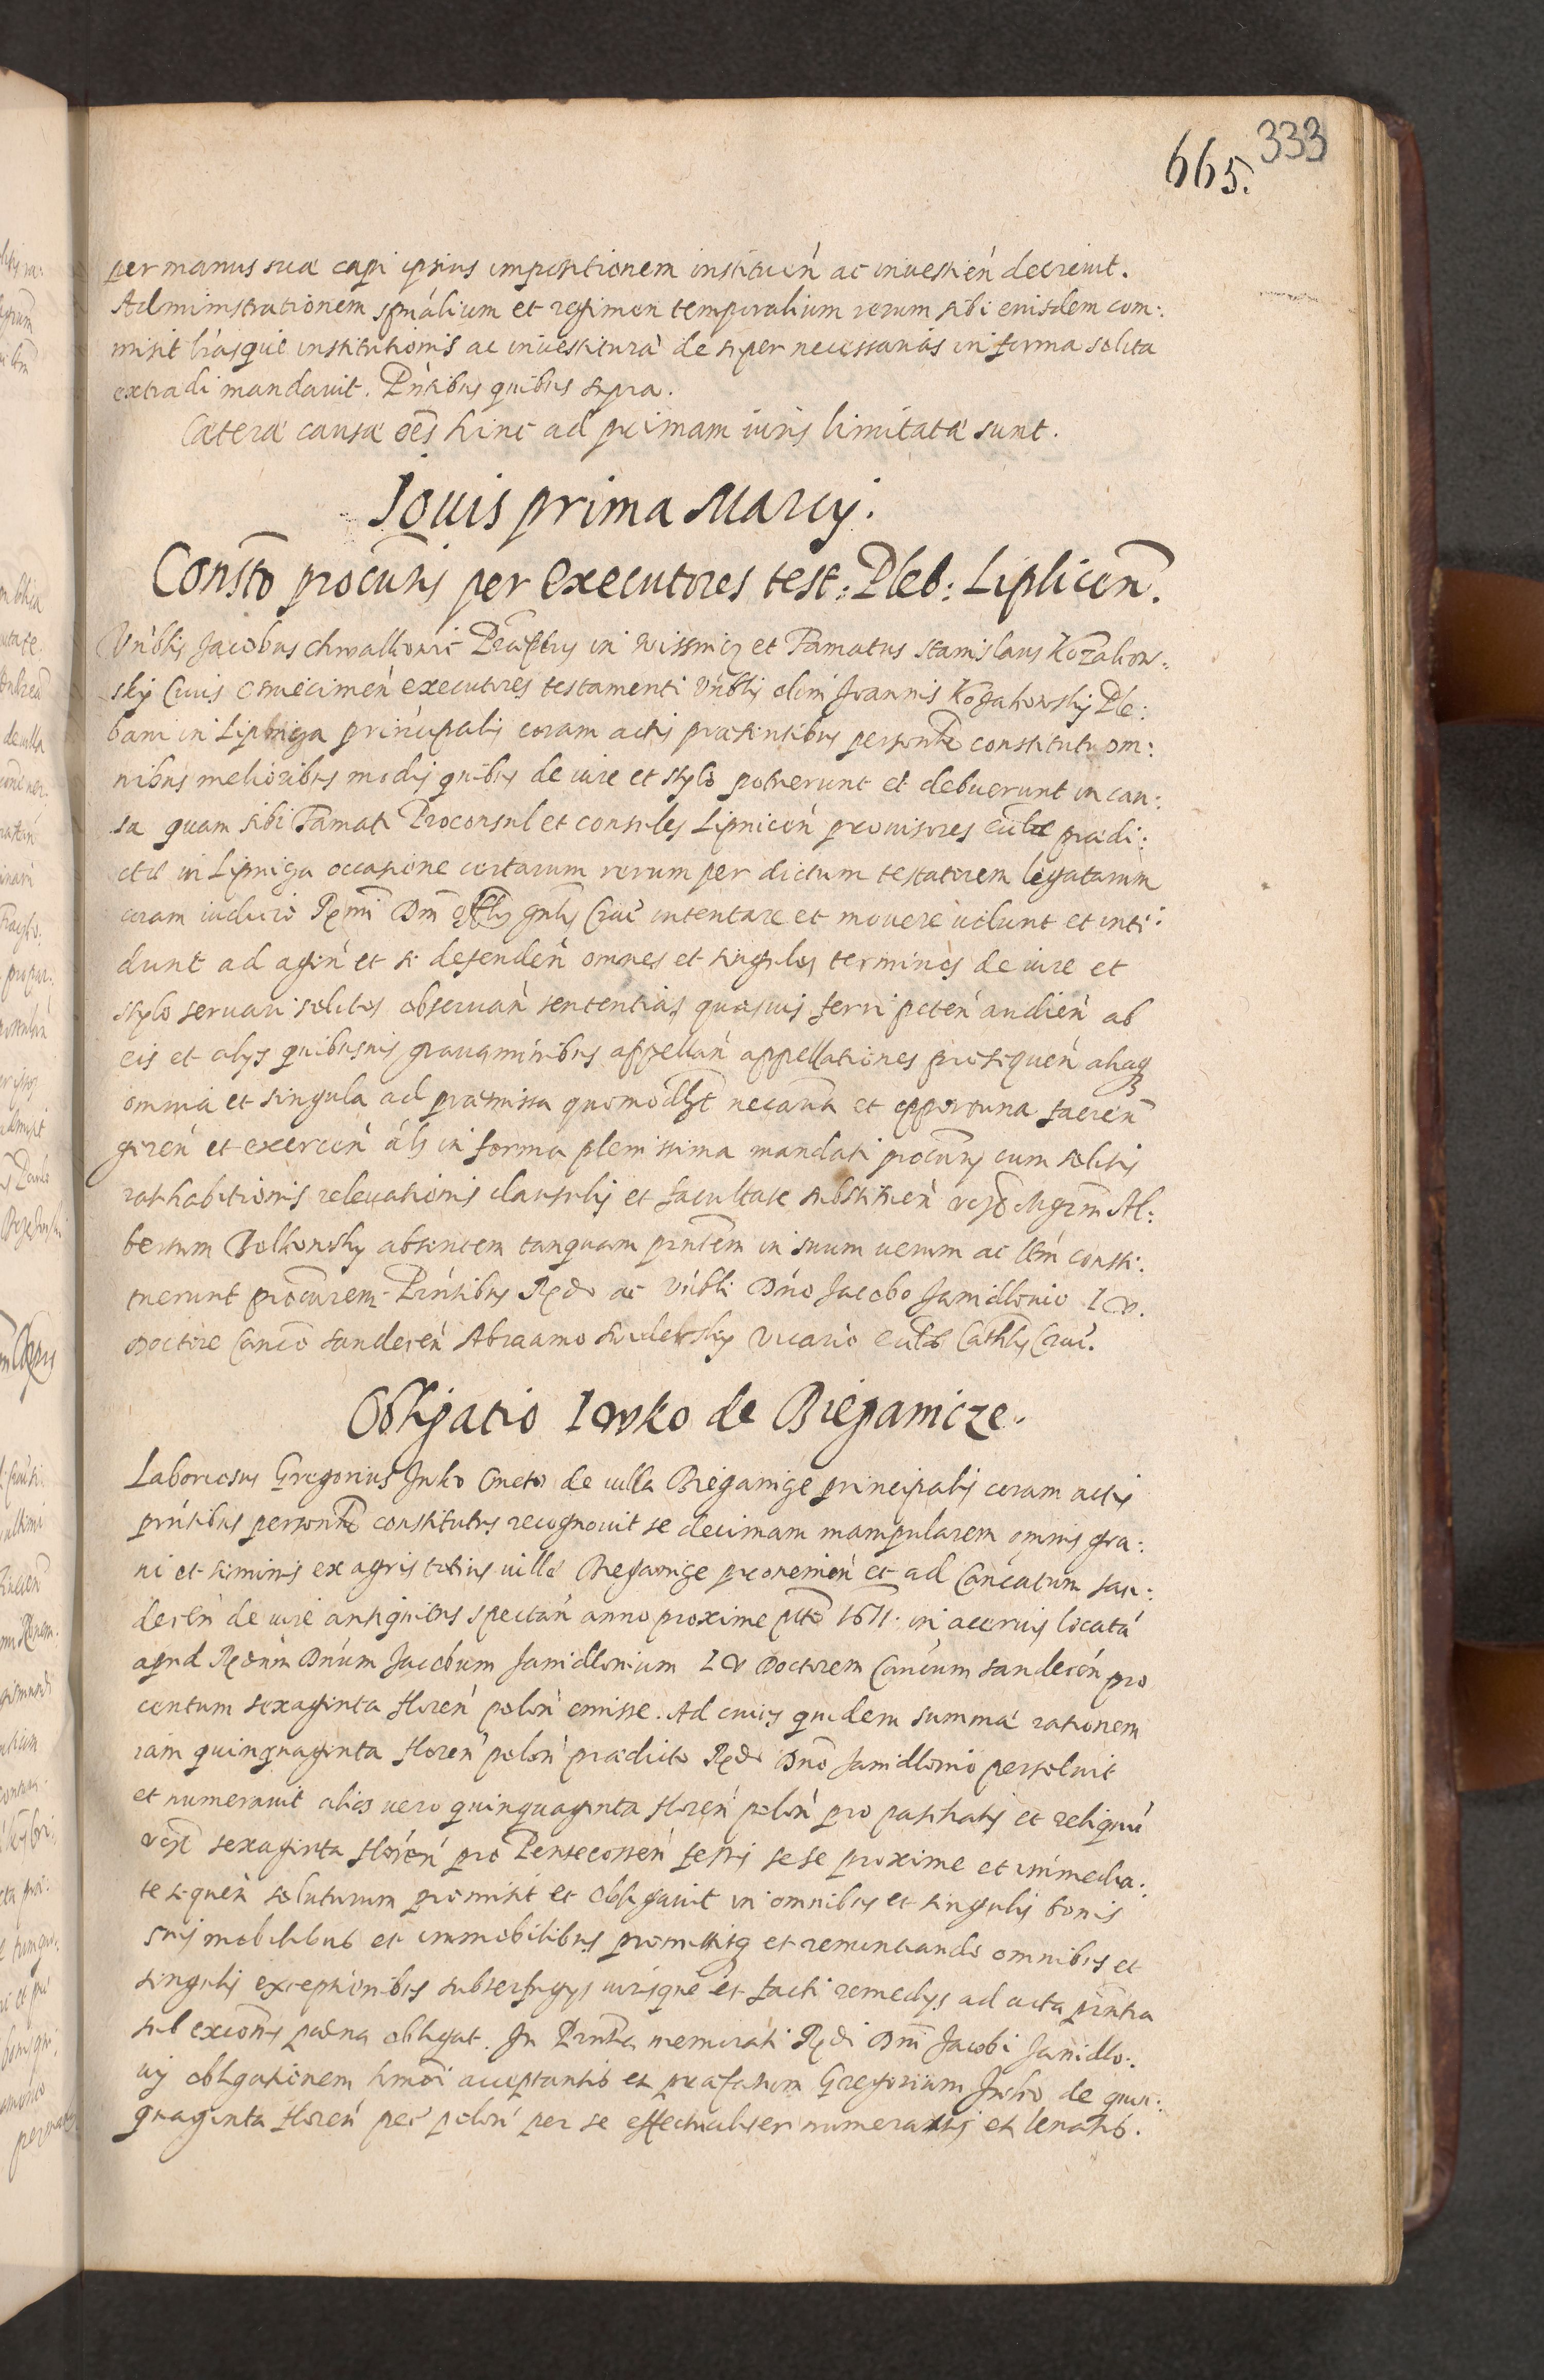 665. 333
per manus suæ capi ipsius impositionem instituen̄ ac inuestien̄ decreuit.
Administrationem spūalium et regimen temporalium rerum sibi eiusdem com:
misit l̄rasque institutionis ac inuestituræ desuper necessarias in forma solita
extradi mandauit. Pn̄tibus quibus supra.
Cæteræ causæ oēs hinc ad primam iuris limitatæ sunt.
Jouis prima Marcij.
Constō procūris per Executores test: Pleb: Liplicen̄.
Vn̄blis Jacobus Chwalkouic Præptus in Wissnicz et Famatus Stanislaus Kozakows:
skj Ciuis Osuecimen̄ executores testamenti Vn̄blis olim Joannis Kozakowskj Ple:
bani in Lipniga principalis coram actis præsentibus personlr̄ constituti om:
nibus melioribus modis quibus de iure et stylo potuerunt et debuerunt in cau:
sa quam sibi Famati Proconsul et consules Lipnicen̄ prouisores eccl̄æ prædi:
ctæ in Lipniga occasione certarum rerum per dictum testatorem legatarum
coram iudicio Rm̄i Dn̄i offlis gn̄lis Crac̄ intentare et mouere uolunt et inten:
dunt ad agen̄ et se defenden̄ omnes et singulos terminos de iure et
stylo seruari solitos obseruan̄ sententias quasuis ferri peten̄ audien̄ ab
eis et alijs quibusuis grauaminibus appellan̄ appellationes prosequen̄ aliaq3
omnia et singula ad præmissa quomodlbt̄ necar̄ia et opportuna facien̄
geren̄ et exercen̄ al̄s in forma plenissima mandati procūris cum solitis
rathabitionis releuationis clausulis et facultate substituen̄ Mgr̄m Al:
bertum Bolkowsky absentem tanquam pn̄tem in suum uerum ac ltm̄ consti:
tuerunt procūrem. Pn̄tibus Rndo ac Vn̄bli Dn̄o Jacobo Janidlouio I V.
Doctore Canco Sandecen̄ Abraamo Vicario eccl̄æ Cathlis Crac̄.
Obligatio Iwko de Bieganicze.
Laboriosus Gregorius Jwko Cmeto de uilla Bieganige principalis coram actis
pn̄tibus personlr̄ constitutus recognouit se decimam manipularem omnis gra:
ni et seminis ex agris totius uillæ Bieganige prouenien̄ et ad Cancatum San:
decen̄ de iure antiquitus spectan̄ anno proxime ptō 1611. in aceruis locatā
apud Rndum Dn̄um Jacobum Janidlouium I V Doctorem Canc̄um Sandecen̄ pro
centum sexaginta floren̄ polon̄ emisse. Ad cuius quidem summæ rationem
iam quinquaginta floren̄ polon̄ prædicto Rndo Dn̄o Janidlouio persoluit
et numerauit alios uero quinquaginta floren̄ polon̄ pro paschatis et reliquū
sexaginta floren̄ pro Pentecosten̄ festis sese proxime et immedia:
te sequen̄ soluturum promisit et obligauit in omnibus et singulis bonis
suis mobilibus et immobilibus et renunciando omnibus et
singulis exceptionibus subterfugijs iurisque et facti remedijs ad acta pn̄tia
sub excoīs pœna obligat. In Pn̄tia memorati Rndi Dn̄i Jacobi Janidlo:
uij obligationem hmoī acceptantis et præfatum Gregorium Jwko de quin:
quaginta floren̄ pec̄ polon̄ per se effectualiter numeratis et leuatis.